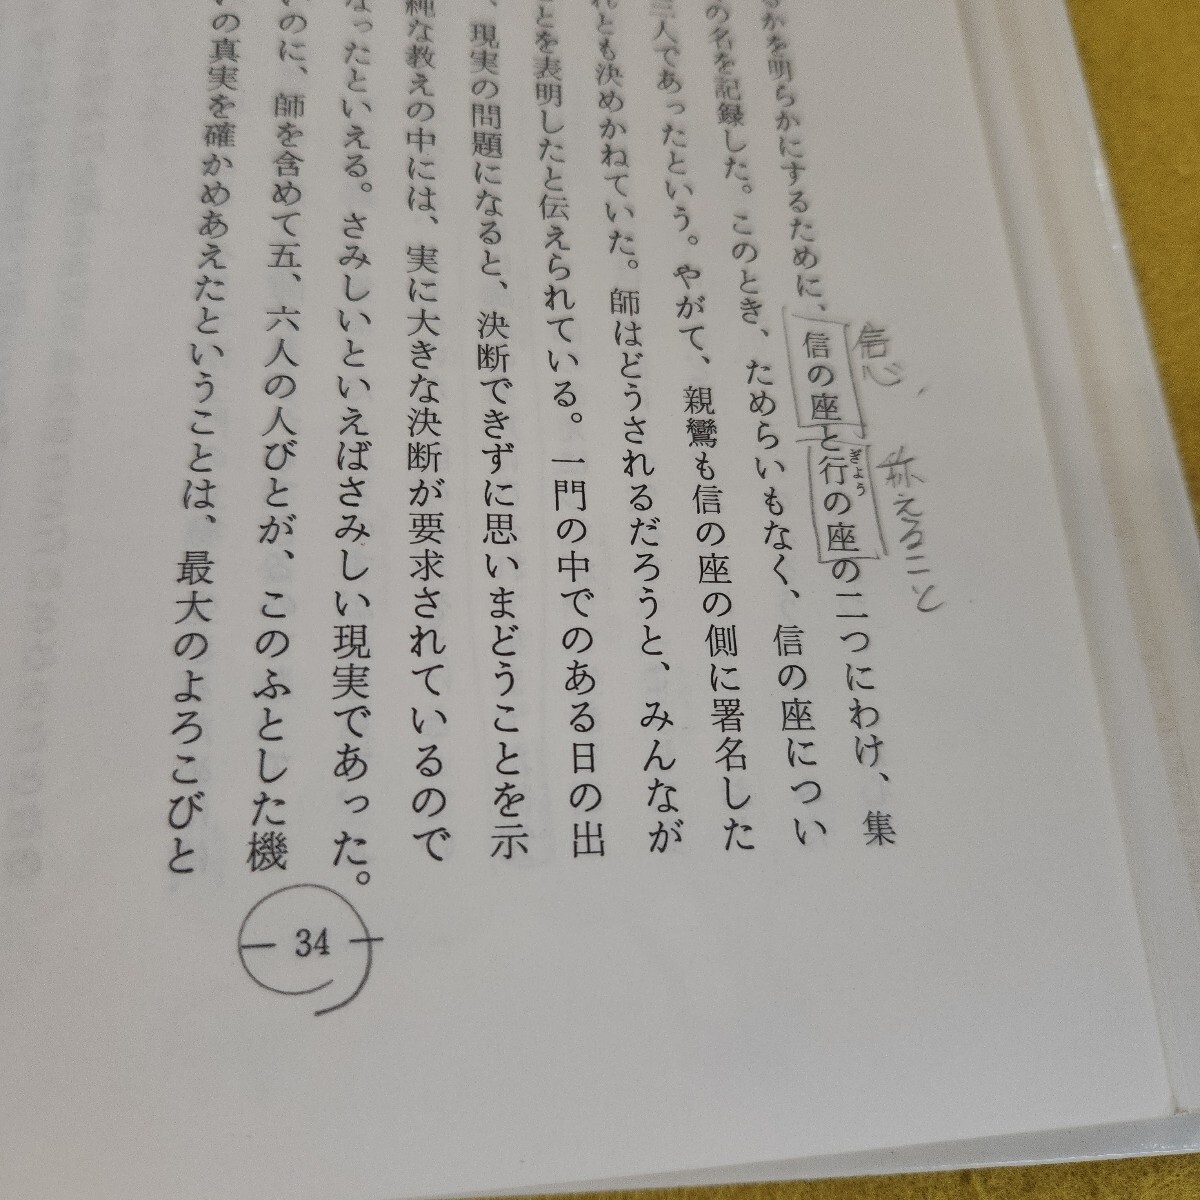 るかを明らかにするために、信の座と行の座の二つにわけ、集
ぎょう
信心
称えること
の名を記録した。このとき、ためらいもなく、信の座につい
三人であったという。やがて、親鸞も信の座の側に署名した
れとも決めかねていた。師はどうされるだろうと、みんなが
ことを表明したと伝えられている。一門の中でのある日の出
、現実の問題になると、決断できずに思いまどうことを示
純な教えの中には、実に大きな決断が要求されているので
なったといえる。さみしいといえばさみしい現実であった。
いのに、師を含めて五、六人の人びとが、このふとした機
いの真実を確かめあえたということは、最大のよろこびと
34